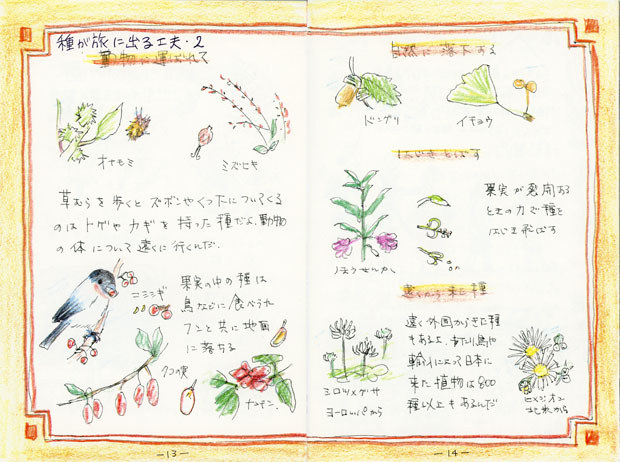 種が旅に出る工夫・2
動物に運ばれて
オナモミ
ミズヒキ
草むらを歩くとズボンやくつ下についてくる
のはトゲやカギを持った種だよ。動物
の体について遠くに行くんだ。
ニシシギ
果実の中の種は
鳥などに食べられ
フンと共に地面
に落ちる
クコの実
-13-
自然に落下する
ドングリ
イチョウ
はじきとばす
果実が裂開する
ときの力で種を
はじき飛ばす
ホウセンカ
遠くから来た種
遠く外国からきた種
もあるよ。
輸入によって日本に
来た植物は800
種以上もあるんだ
シロツメグサ
ヨーロッパから
ヒメジオン
北米から
-14-